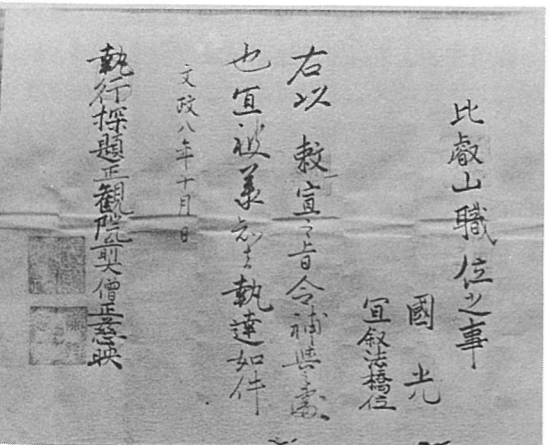 比叡山職位之事
國光
宜叙法橋位
右以 敕宣之旨令補與之處
也宜被承知者執達如件
文政八年十月 日
執行探題正観院前大僧正慈映